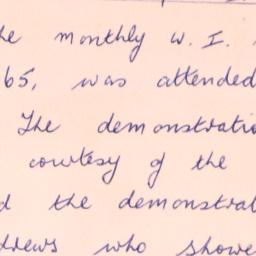 he monthly W. I.
65, was attended
The demonstratio
courtesy of the
d the demonstrat
drews who showe